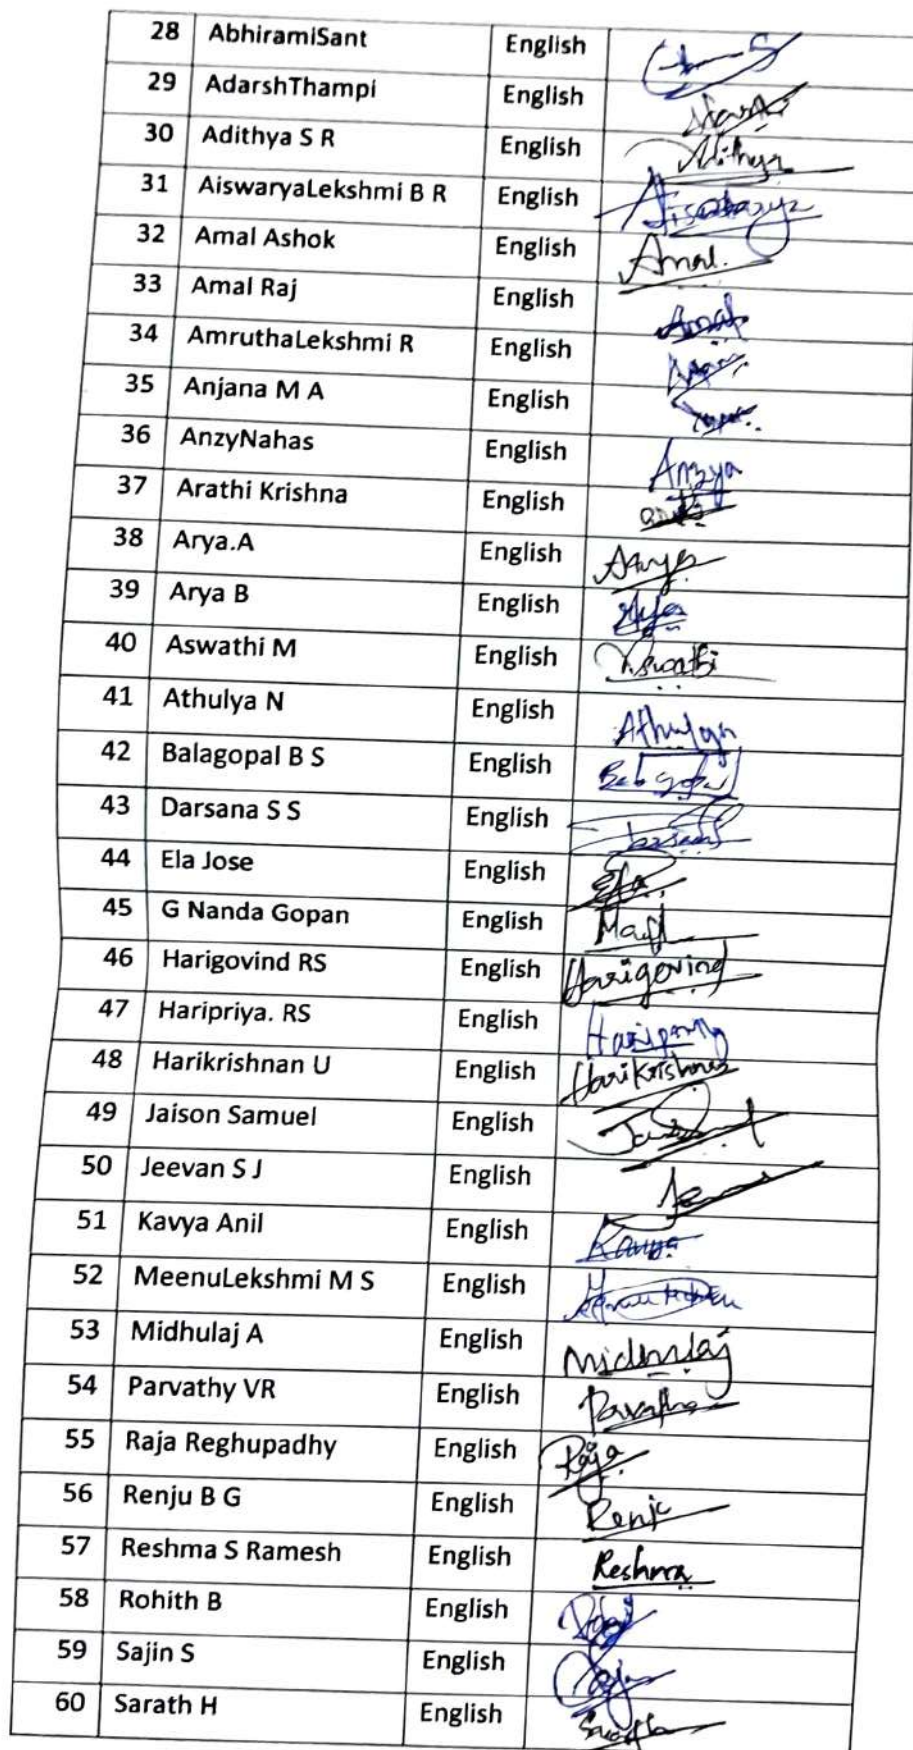 28 AbhiramiSant English
29 AdarshThampi English
30 Adithya S R English Adithya
31 AiswaryaLekshmi B R English Aiswarya
32 Amal Ashok English Amal.
33 Amal Raj English Amal
34 AmruthaLekshmi R English
35 Anjana M A English
36 AnzyNahas English Anzya
37 Arathi Krishna English
38 Arya.A English Aarya
39 Arya B English Arya
40 Aswathi M English Aswathi
41 Athulya N English Athulya
42 Balagopal B S English Balagopal
43 Darsana S S English Darsana
44 Ela Jose English Ela
45 G Nanda Gopan English
46 Harigovind RS English Harigovind
47 Haripriya. RS English Haripriya
48 Harikrishnan U English Harikrishnan
49 Jaison Samuel English
50 Jeevan S J English
51 Kavya Anil English Kavya
52 MeenuLekshmi M S English
53 Midhulaj A English Midhulaj
54 Parvathy VR English Parvathy
55 Raja Reghupadhy English Raja
56 Renju B G English Renju
57 Reshma S Ramesh English Reshma
58 Rohith B English
59 Sajin S English Sajin
60 Sarath H English Sarath